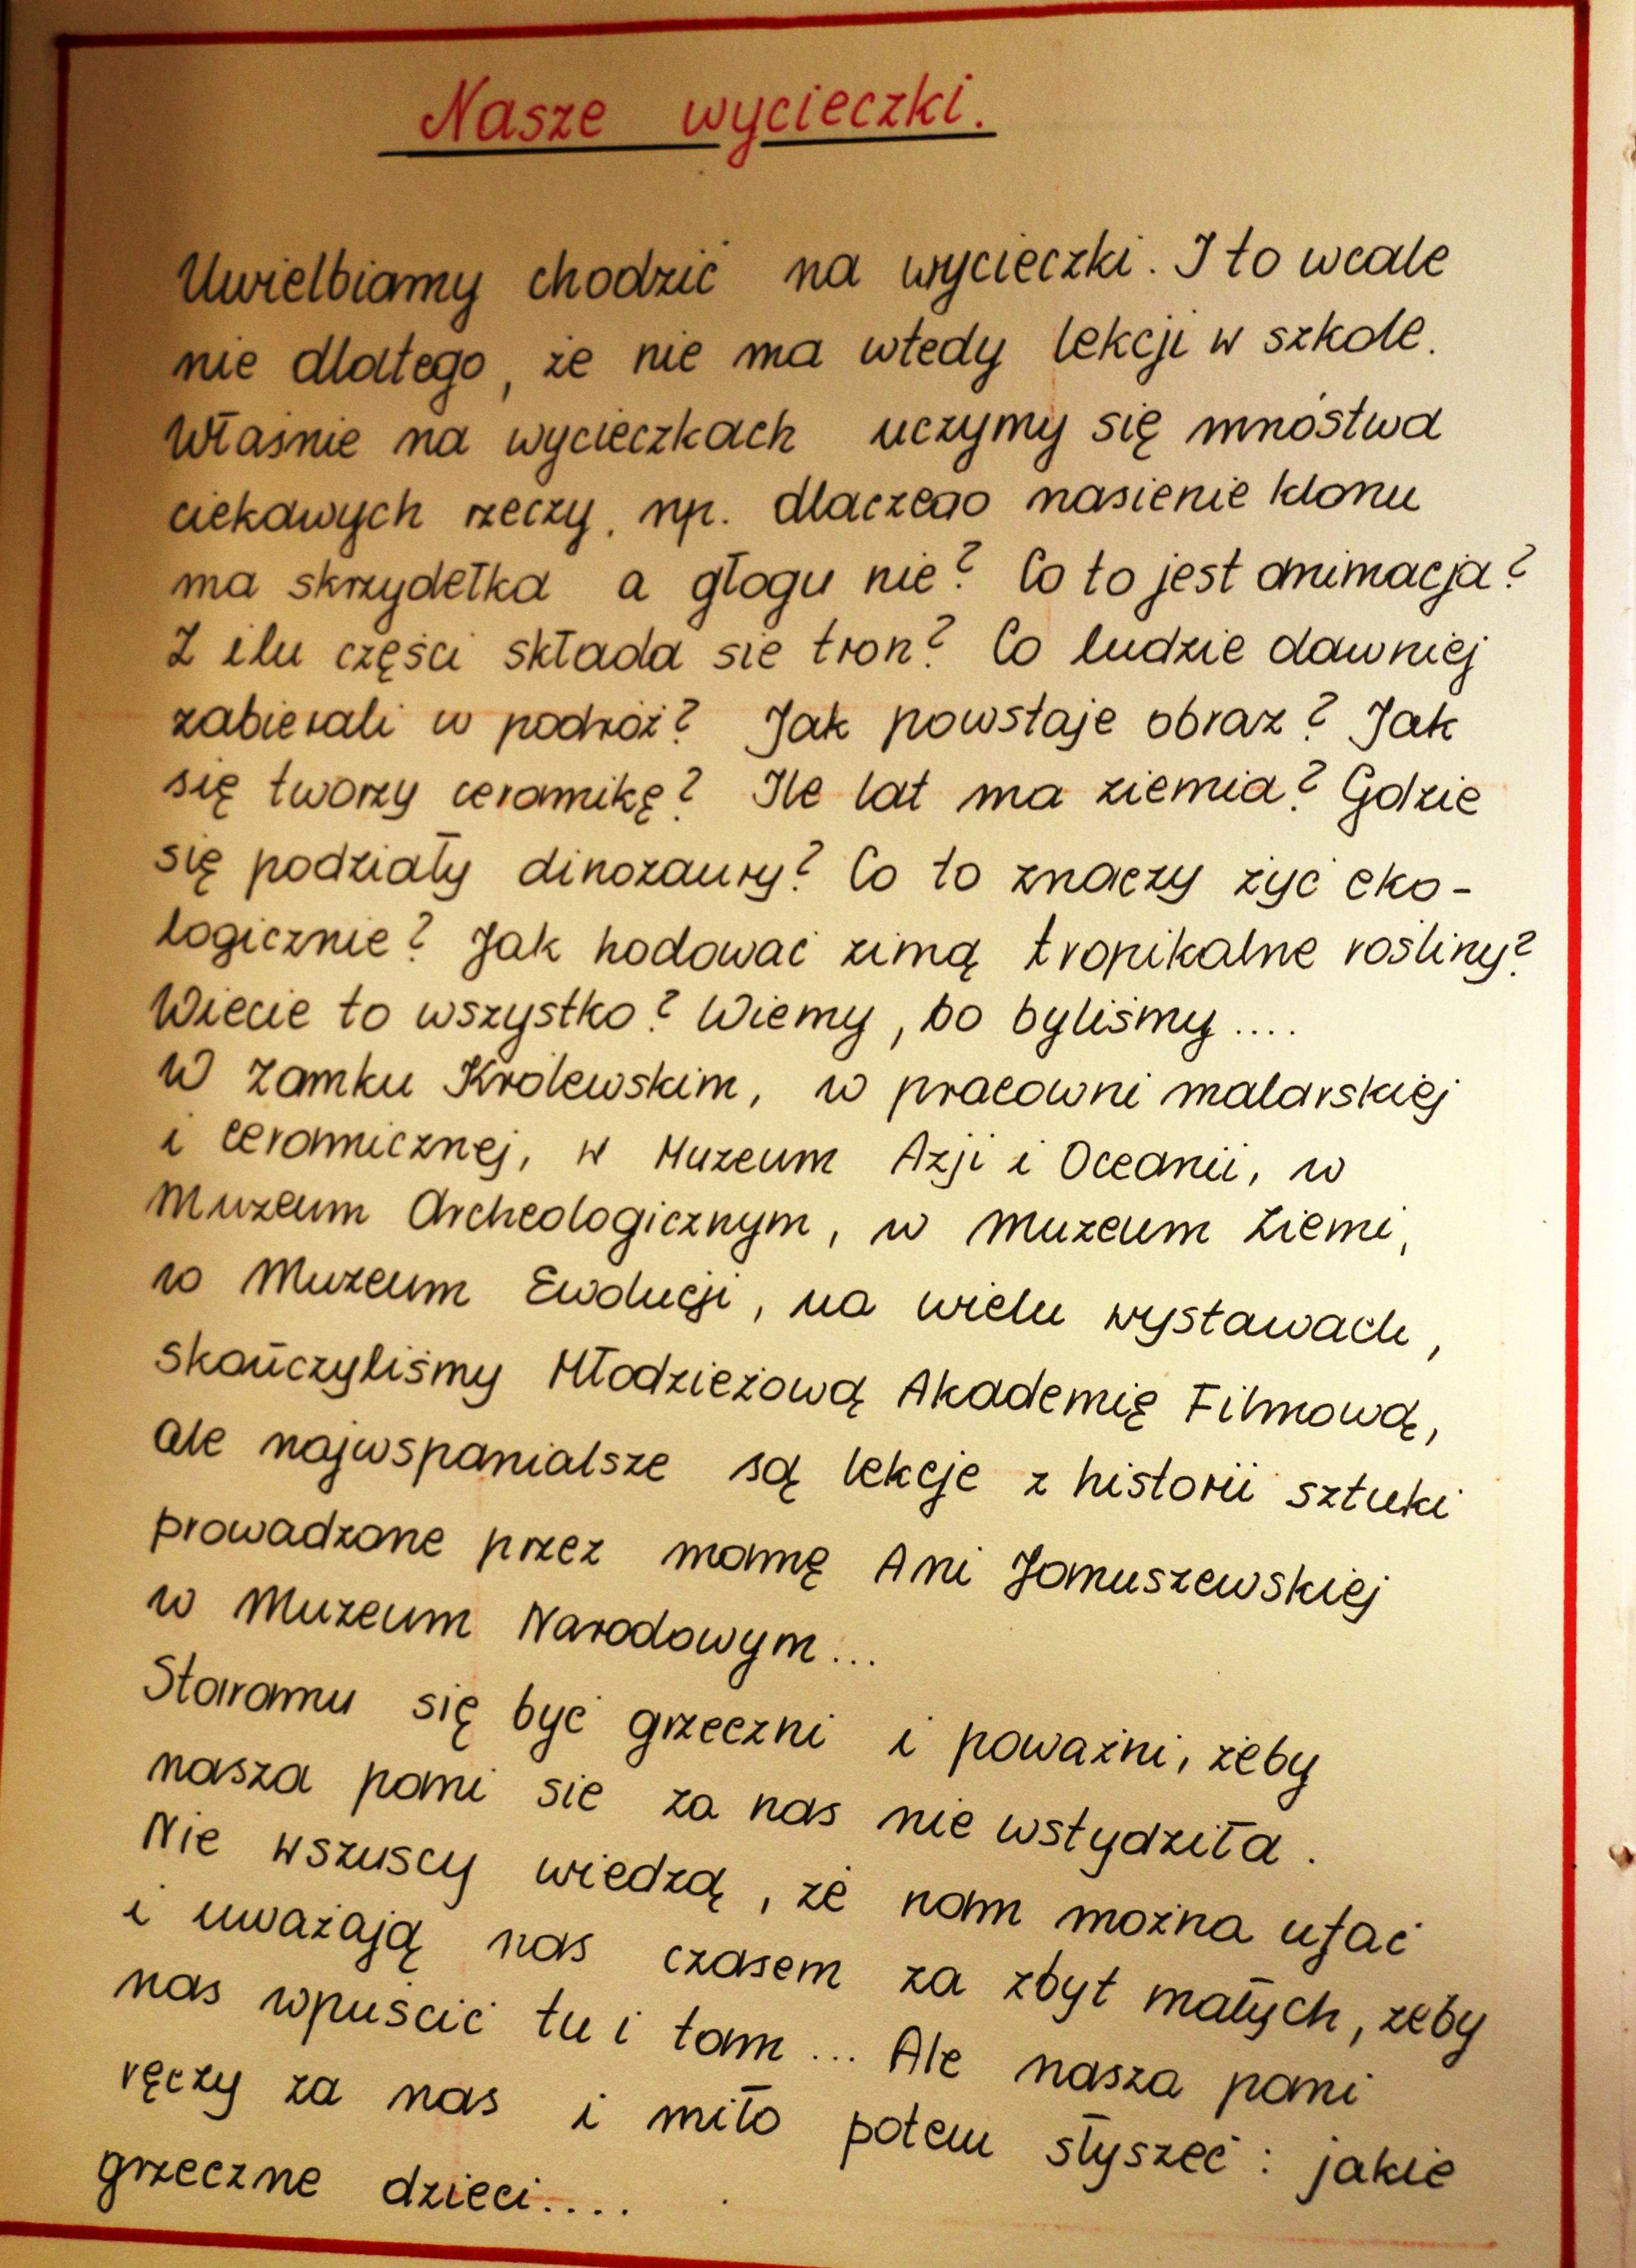 Nasze wycieczki.
Uwielbiamy chodzić na wycieczki. I to wcale
nie dlatego, że nie ma wtedy lekcji w szkole.
Właśnie na wycieczkach uczymy się mnóstwa
ciekawych rzeczy, np. dlaczego nasienie klonu
ma skrzydełka a głogu nie? Co to jest animacja?
Z ilu części składa sie tron? Co ludzie dawniej
zabierali w podróż? Jak powstaje obraz? Jak
się tworzy ceramikę? Ile lat ma ziemia? Gdzie
się podziały dinozaury? Co to znaczy żyć eko-
logicznie? Jak hodować zimą tropikalne rośliny?
Wiecie to wszystko? Wiemy, bo byliśmy....
W Zamku Królewskim, w pracowni malarskiej
i ceramicznej, w Muzeum Azji i Oceanii, w
Muzeum Archeologicznym, w Muzeum Ziemi,
w Muzeum Ewolucji, na wielu wystawach,
skończyliśmy Młodzieżową Akademię Filmową,
ale najwspanialsze są lekcje z historii sztuki
prowadzone przez mamę Ani Januszewskiej
w Muzeum Narodowym...
Staramu się być grzeczni i poważni, żeby
nasza pani sie za nas nie wstydziła.
Nie wszuscy wiedzą, że nam można ufać
i uważają nas czasem za zbyt małych, żeby
nas wpuścić tu i tam... Ale nasza pani
ręczy za nas i miło potem słyszeć: jakie
grzeczne dzieci....